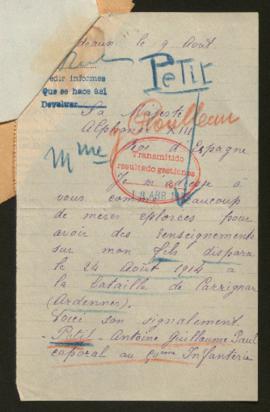 le 9 Août
Petit
pedir informes
Que se hace así
Devolver
Sa Majesté
Alphonse XIII
Roi d'Espagne
Mme
Transmitido
resultado gestiones
ABR
Je m'adresse à
vous comme beaucoup
de mères éplorées pour
avoir des renseignements
sur mon fils disparu
le 24 Août 1914 à
la bataille de Carrignan
(Ardennes).
Voici son signalement
Petit Antoine Guillaume Paul
caporal au Infanterie